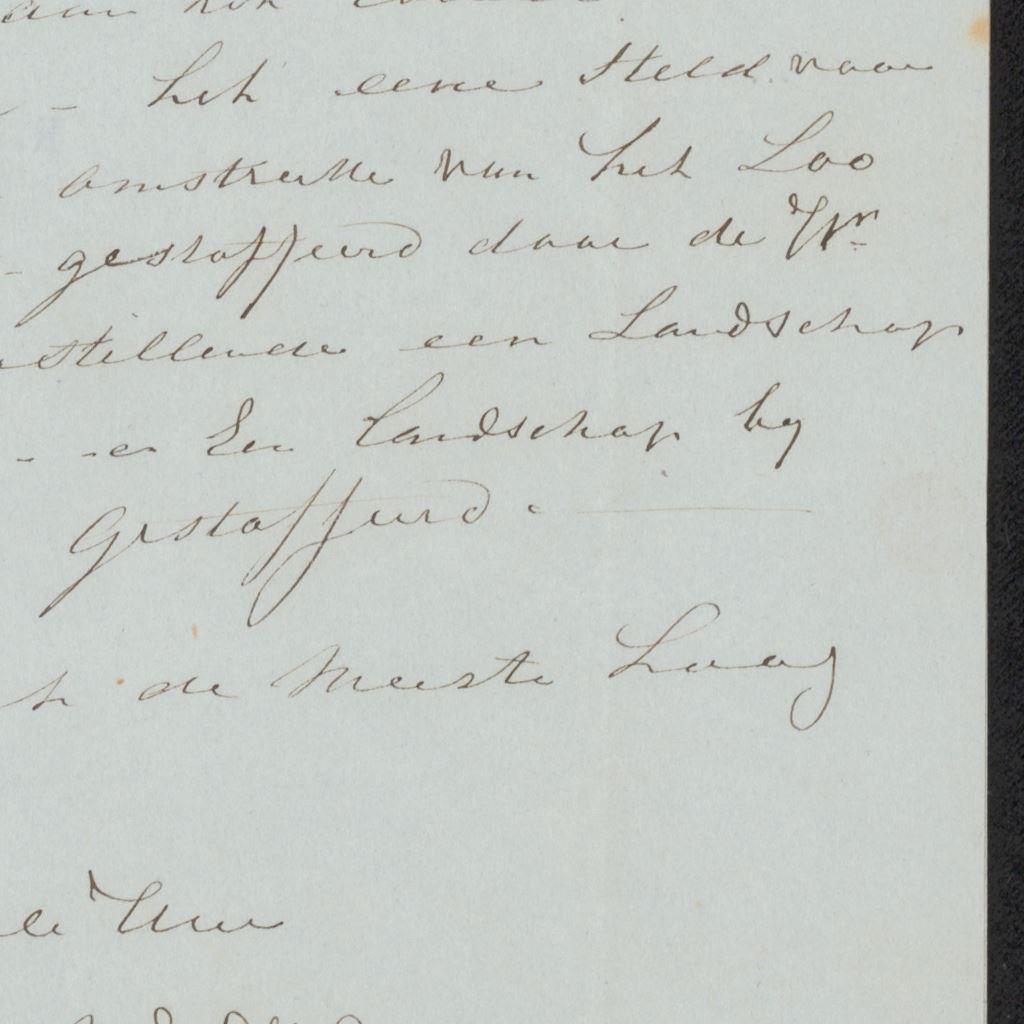 het eene Steld voor
omstreeke van het Loo
gestoffeerd daar de Wr
stellende een Landschap
Een landschap by
Gestoffeerd.
de Meeste Haag